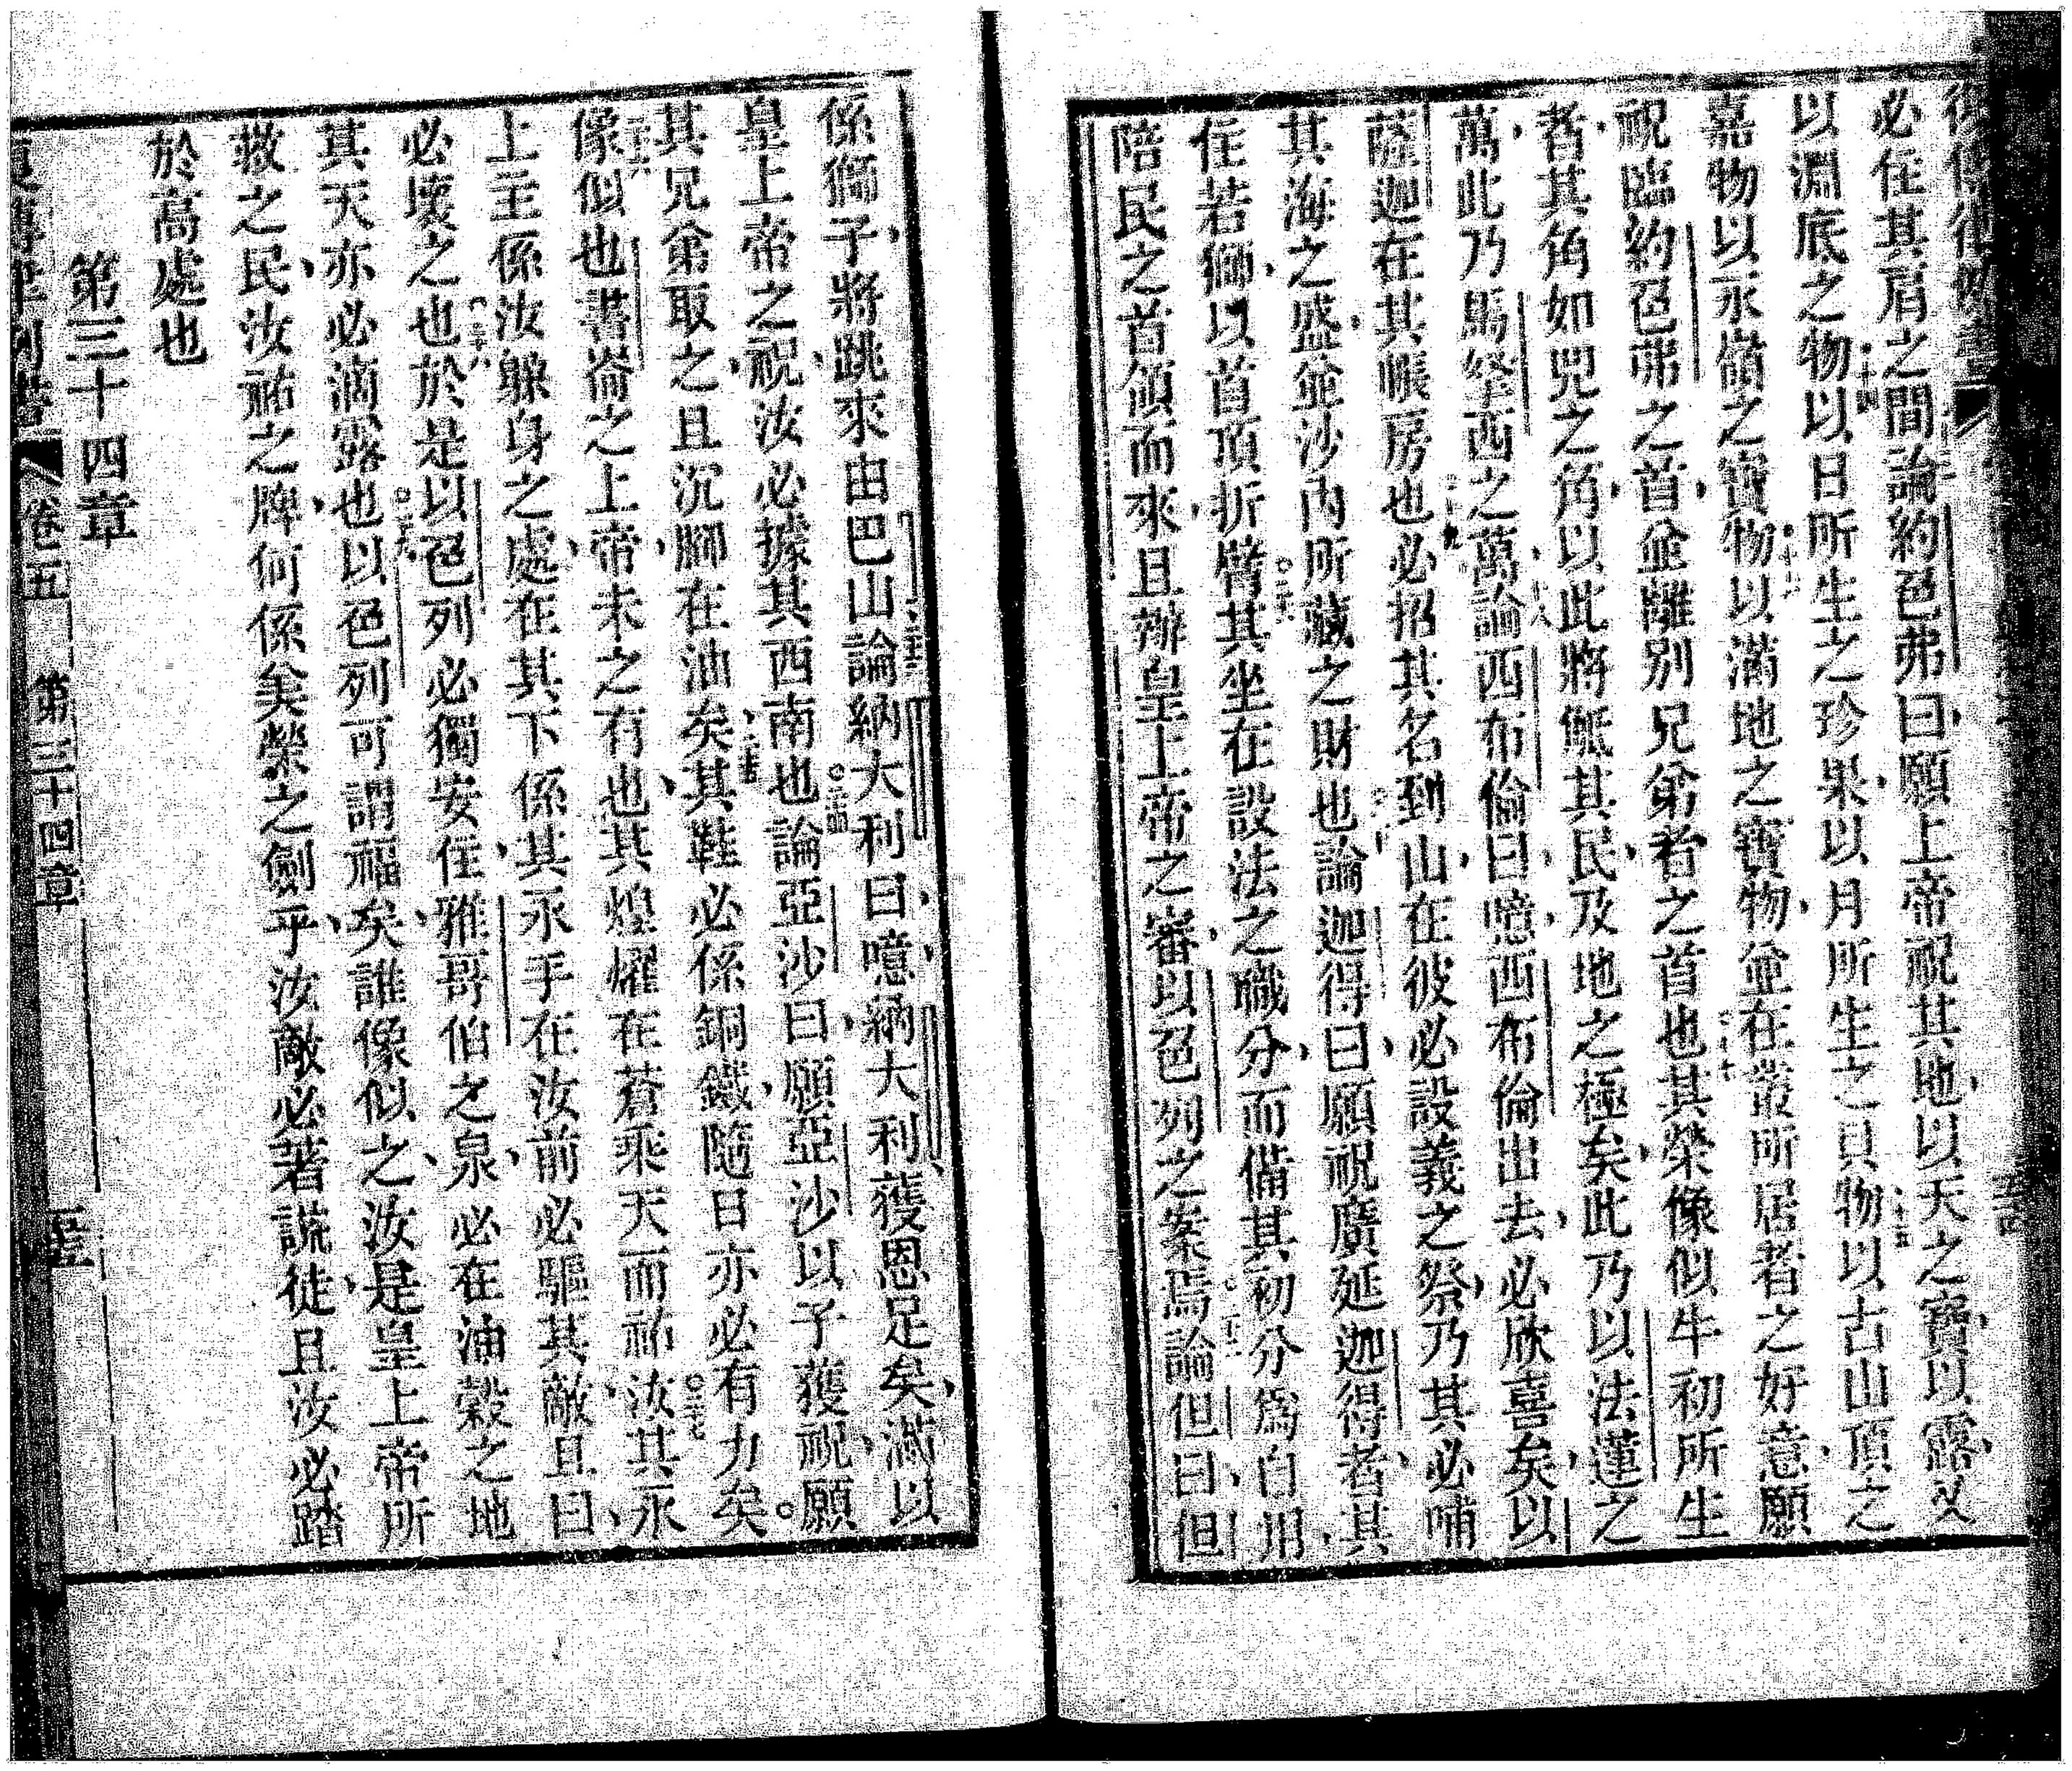 必住其肩之間論約色弗曰願上帝祝其地以天之寶以露又
以淵底之物以日所生之珍果以月所生之貝物以古山頂之
嘉物以永嶺之寶物以滿地之寶物並在叢所居者之好意願
祝臨約色弗之首並離別兄弟者之首也其榮像似牛初所生
者其角如兕之角以此將觝其民及地之極矣此乃以法蓮之
萬此乃馬拏西之萬論西布倫曰噫西布倫出去必欣喜矣以
薩迦在其帳房也必招其名到山在彼必設義之祭乃其必哺
其海之盛並沙內所藏之財也論迦得曰願祝廣延迦得者其
住若獅以首頂折臂其坐在設法之職分而備其初分為自用
陪民之首領而來且辦皇上帝之審以色列之案焉論但曰但
係獅子將跳來由巴山論納大利曰噫納大利獲恩足矣滿以
皇上帝之祝汝必據其西南也論亞沙曰願亞沙以子獲祝願
其兄弟取之且沉腳在油矣其鞋必係銅鐵隨日亦必有力矣
像似也書崙之上帝未之有也其煌燿在蒼乘天而祐汝其永
上主係汝躲身之處在其下係其永手在汝前必驅其敵且曰
必壞之也於是以色列必獨安住雅哥伯之泉必在油穀之地
其天亦必滴露也以色列可謂福矣誰像似之汝是皇上帝所
救之民汝祐之牌何係矣榮之劍乎汝敵必著謊徒且汝必踏
於高處也
第三十四章
卷五 第三十四章